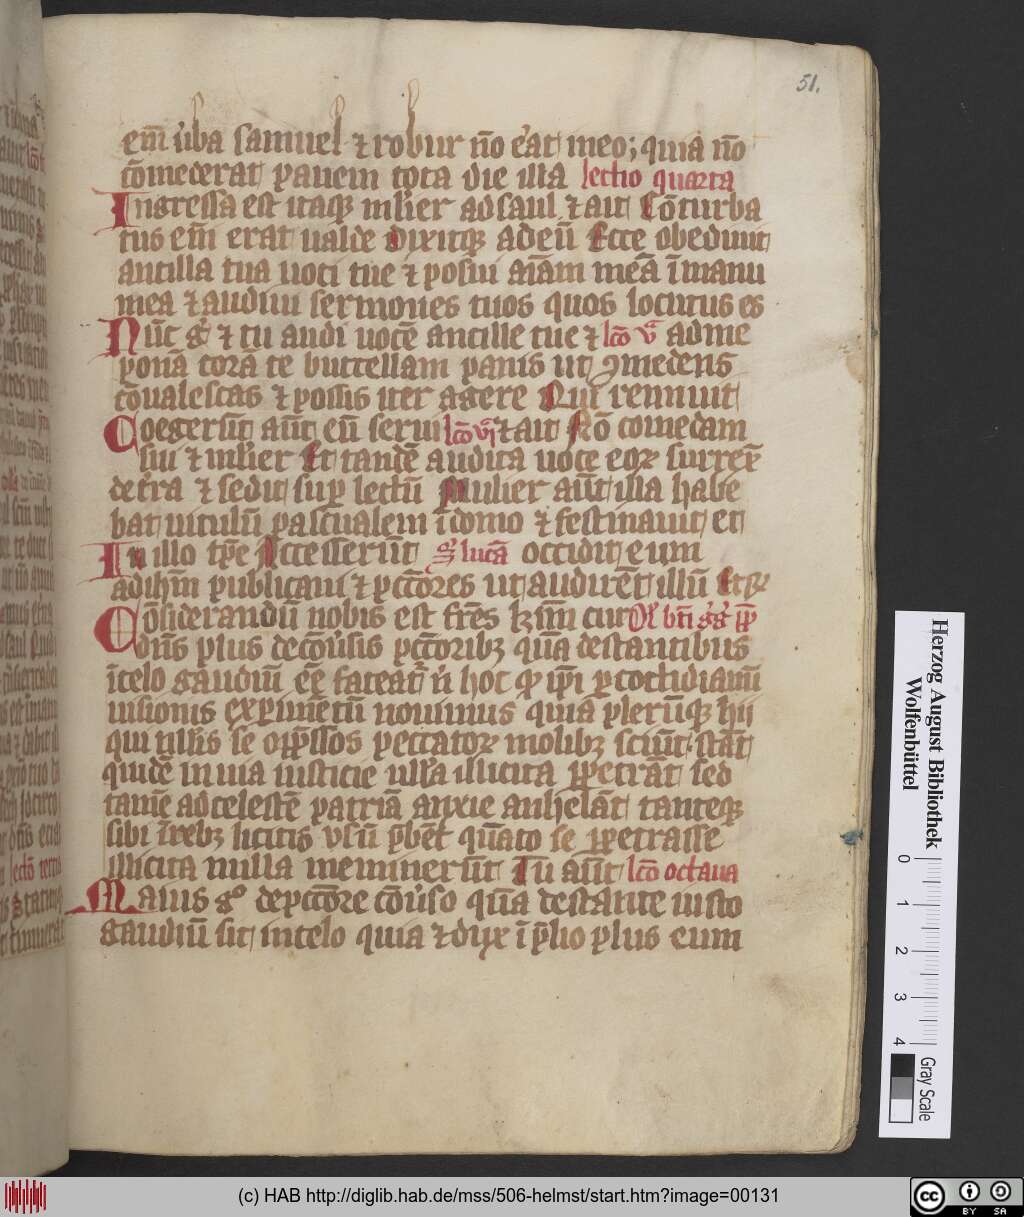 51.
em̄ ūba samuel ⁊ robur nō ēat meo; quia nō
cōmederat panem tota die illa lectio quarta
Ingressa est itaqꝫ mlier ad saul ⁊ ait Cōturba
tus em̄ erat ualde dixitqꝫ ad eū Ecce obediuit
ancilla tua uoci tue ⁊ posui aīam meā ī manu
mea ⁊ audiui sermones tuos quos locutus es
Nūc gͦ ⁊ tu audi uocē ancille tue ⁊ lcō vͣ ad me
ponā corā te buccellam panis ut ꝯmedens
cōualescas ⁊ possis iter agere Qui rennuit
Coegerūt aūt eū serui lcō viͣ ⁊ ait Nō comedam
sui ⁊ mlier Et tandē audita uoce eoꝝ surrex̄
de t̄ra ⁊ sedit sup̄ lectū Mulier aūt illa habe
bat uitulū pascualem ī domo ⁊ festinauit et
In illo tp̄e Accesserūt s̄ lucā occidit eum
ad ihm̄ publicani ⁊ pc̄cōres ut audirēt illū Et rͥ
Cōsiderandū nobis est frēs kṙm̄ cur Om̄ bt̄i gͥgͥ pp̄
dn̄s plus de cōūsis pc̄cōribꝫ quā de stantibus
ī celo gaudiū eē fateatͬ n̄ hoc qꝫ ip̄i ꝑ cotidianū
uisionis exꝑimētū nouimus quia plerūqꝫ hii
qui nll̄is se opp̄ssos peccatoꝝ molibꝫ sciūt stāt
quidē in uia iusticie nll̄a illicita ꝑpetrāt sed
tam̄e ad celestē patriā anxie anhelāt tanteqꝫ
sibi ī rebꝫ licitis vsū p̄bēt quāto se ꝑpetrasse
illicita nulla meminerūt Tu aūt lcō octaua
Maius gͦ de pc̄cōre cōūso quā de stante iusto
gaudiū sit in celo quia ⁊ dux ī p̄lio plus eum
Herzog August Bibliothek
Wolfenbüttel
0 1 2 3 4
Gray Scale
(c) HAB http://diglib.hab.de/mss/506-helmst/start.htm?image=00131
cc BY SA